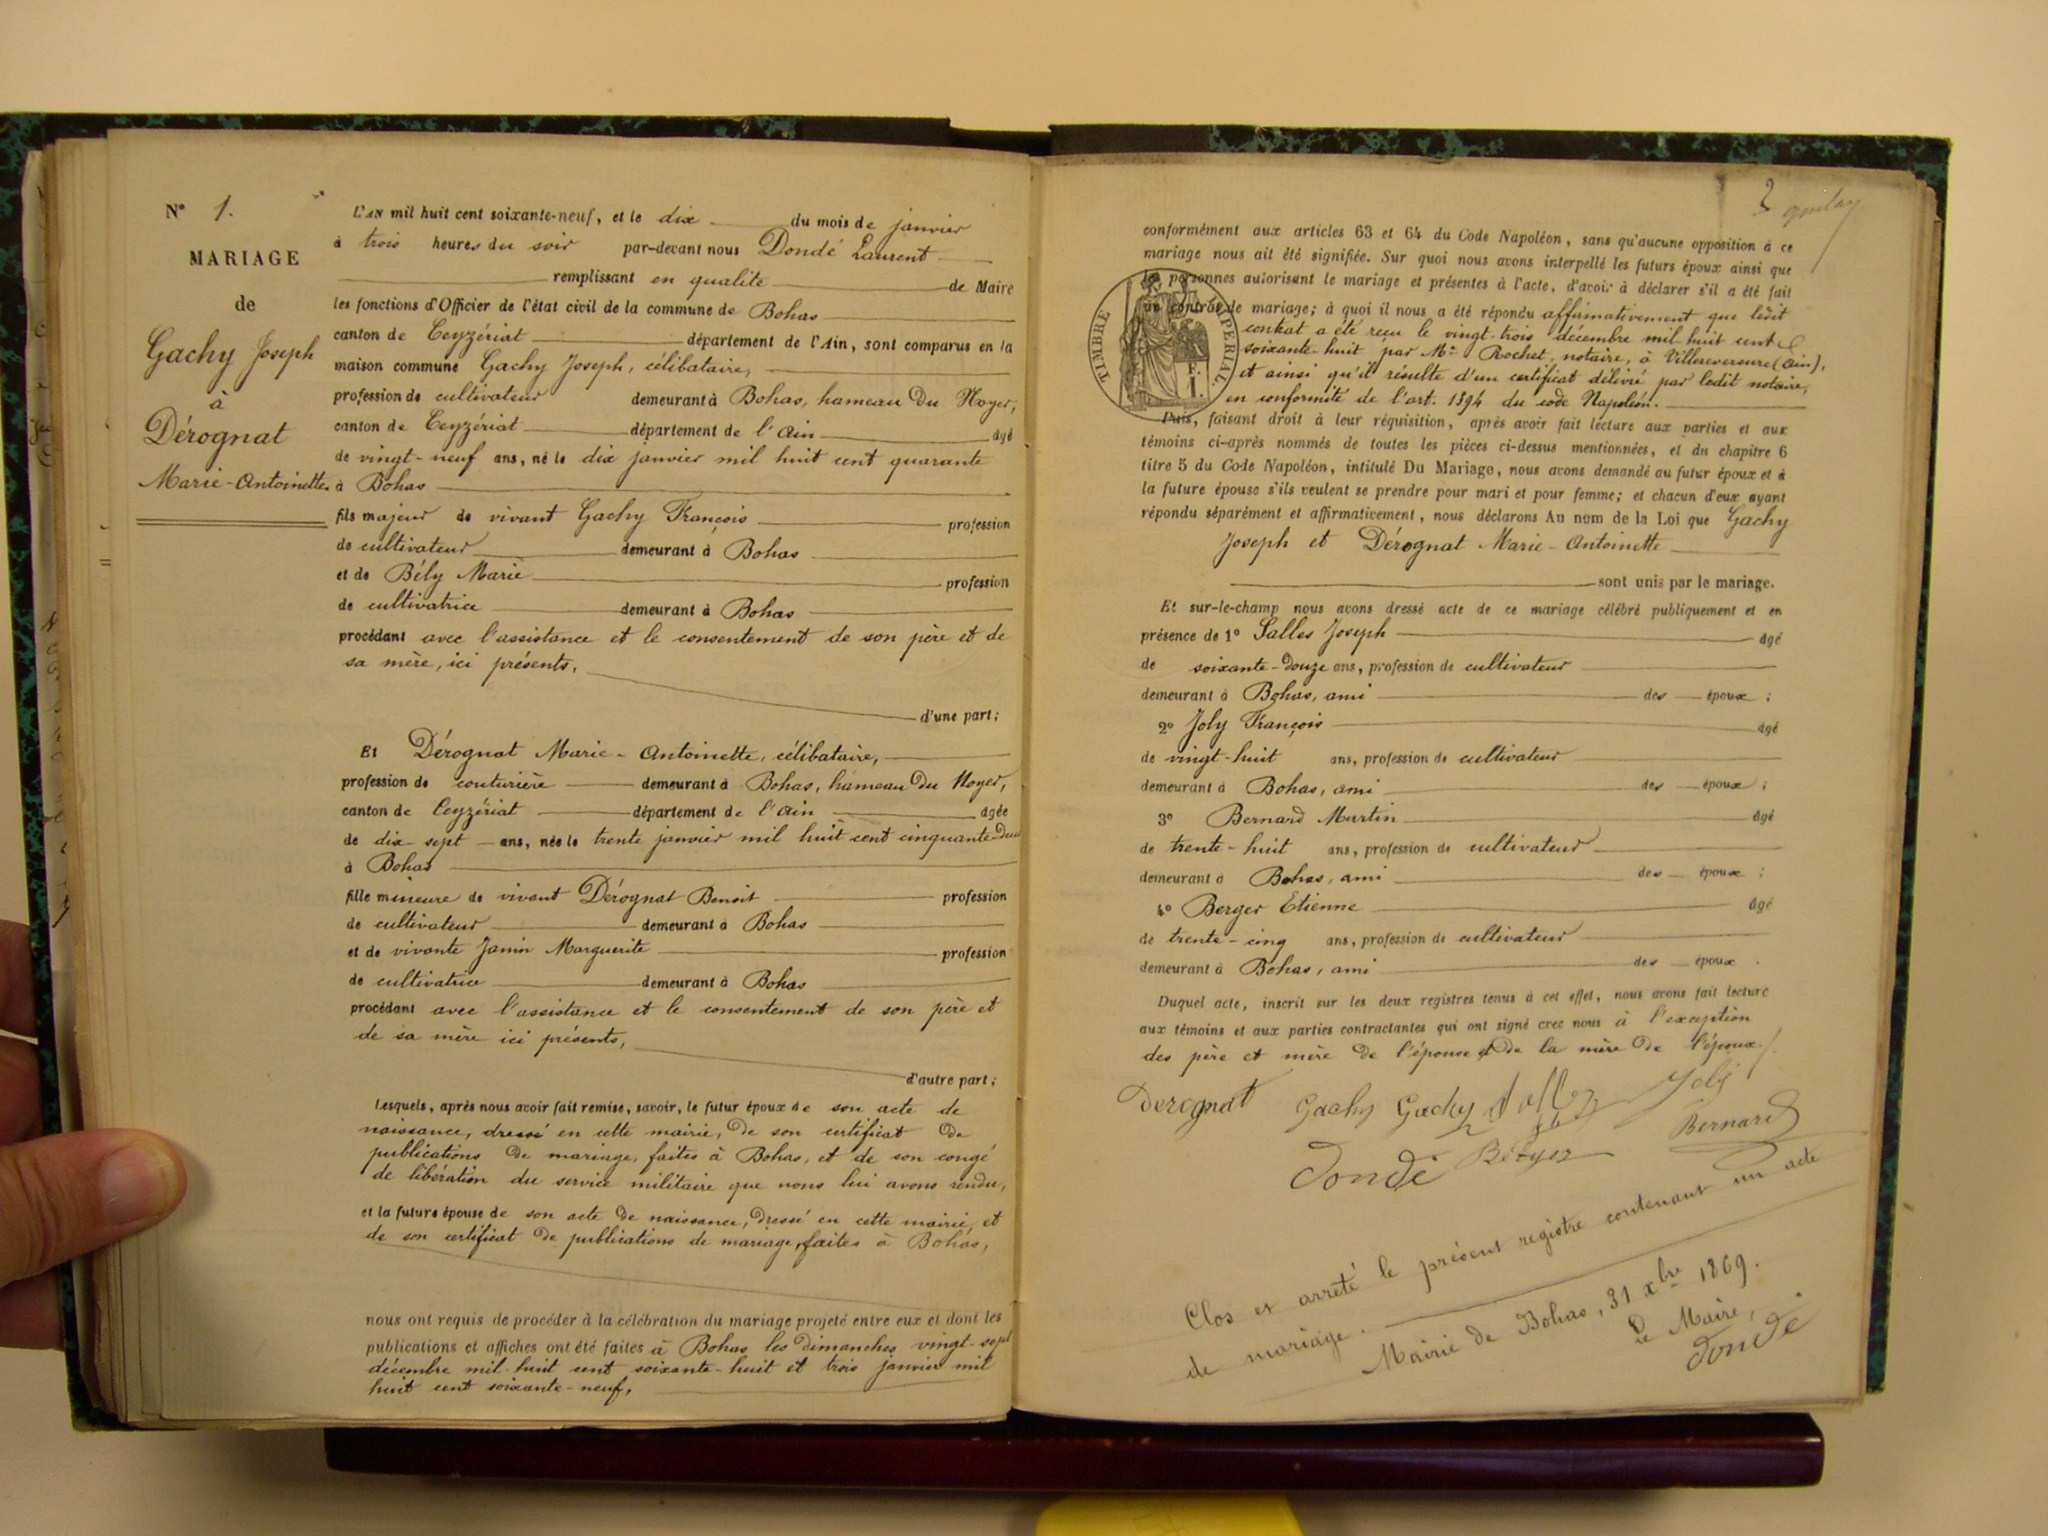 N° 1.
MARIAGE
de
Gachy Joseph
à
Dérognat
Marie-Antoinette
L'AN mil huit cent soixante-neuf, et le dix du mois de janvier
à trois heures du soir par-devant nous Dondé Laurent
remplissant en qualité de Maire
les fonctions d'Officier de l'état civil de la commune de Bohas
canton de Ceyzériat département de l'Ain, sont comparus en la
maison commune Gachy Joseph, célibataire,
profession de cultivateur demeurant à Bohas, hameau Du Noyer,
canton de Ceyzériat département de l'Ain âgé
de vingt-neuf ans, né le dix janvier mil huit cent quarante
à Bohas
fils majeur de vivant Gachy François profession
de cultivateur demeurant à Bohas
et de Bély Marie profession
de cultivatrice demeurant à Bohas
procédant avec l'assistance et le consentement de son père et de
sa mère, ici présents,
d'une part;
Et Dérognat Marie-Antoinette, célibataire,
profession de couturière demeurant à Bohas, hameau Du Noyer,
canton de Ceyzériat département de l'Ain âgée
de dix-sept ans, née le trente janvier mil huit cent cinquante-deux
à Bohas
fille mineure de vivant Dérognat Benoit profession
de cultivateur demeurant à Bohas
et de vivante Janin Marguerite profession
de cultivatrice demeurant à Bohas
procédant avec l'assistance et le consentement de son père et
de sa mère ici présents,
d'autre part;
Lesquels, après nous avoir fait remise, savoir, le futur époux de son acte de
naissance, dressé en cette mairie, de son certificat de
publications de mariage, faites à Bohas, et de son congé
de libération du service militaire que nous lui avons rendu,
et la future épouse de son acte de naissance, dressé en cette mairie, et
de son certificat de publications de mariage, faites à Bohas,
nous ont requis de procéder à la célébration du mariage projeté entre eux et dont les
publications et affiches ont été faites à Bohas les dimanches vingt-sept
décembre mil huit cent soixante-huit et trois janvier mil
huit cent soixante-neuf,
conformément aux articles 63 et 64 du Code Napoléon, sans qu'aucune opposition à ce
mariage nous ait été signifiée. Sur quoi nous avons interpellé les futurs époux ainsi que
les personnes autorisant le mariage et présentes à l'acte, d'avoir à déclarer s'il a été fait
un contrat de mariage; à quoi il nous a été répondu affirmativement que ledit
contrat a été reçu le vingt-trois décembre mil huit cent
soixante-huit par Me Rochet, notaire, à Villereversure (Ain),
et ainsi qu'il résulte d'un certificat délivré par ledit notaire,
en conformité de l'art. 1394 du code Napoléon.
TIMBRE IMPÉRIAL.
Puis, faisant droit à leur réquisition, après avoir fait lecture aux parties et aux
témoins ci-après nommés de toutes les pièces ci-dessus mentionnées, et du chapitre 6
titre 5 du Code Napoléon, intitulé Du Mariage, nous avons demandé au futur époux et à
la future épouse s'ils veulent se prendre pour mari et pour femme; et chacun d'eux ayant
répondu séparément et affirmativement, nous déclarons Au nom de la Loi que Gachy
Joseph et Dérognat Marie-Antoinette
sont unis par le mariage.
Et sur-le-champ nous avons dressé acte de ce mariage célébré publiquement et en
présence de 1° Salles Joseph âgé
de soixante-douze ans, profession de cultivateur
demeurant à Bohas, ami des époux;
2° Joly François âgé
de vingt-huit ans, profession de cultivateur
demeurant à Bohas, ami des époux;
3° Bernard Martin âgé
de trente-huit ans, profession de cultivateur
demeurant à Bohas, ami des époux;
4° Berger Etienne âgé
de trente-cinq ans, profession de cultivateur
demeurant à Bohas, ami des époux.
Duquel acte, inscrit sur les deux registres tenus à cet effet, nous avons fait lecture
aux témoins et aux parties contractantes qui ont signé avec nous à l'exception
des père et mère de l'épouse et de la mère de l'époux.
Derognat Gachy Gachy Joly
Bernard
Dondé
Clos et arrêté le présent registre contenant un acte
de mariage.
Mairie de Bohas, 31 xbre 1869.
Le Maire,
Dondé